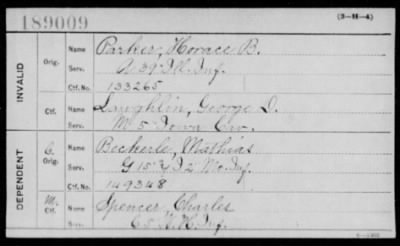 189009
(3-H-4)
INVALID
Orig.
Name Parker, Horace B.
Serv. A 39" Ill. Inf.
Ctf. No. 133265
Ctf.
Name Laughlin, George D.
Serv. M 5 Iowa Cav.
DEPENDENT
C.
Orig.
Name Beckerle, Mathias
Serv. G 15" & I 2 Mo. Inf.
Ctf. No. 149348
M.
Ctf.
Name Spencer, Charles
Serv. Inf.